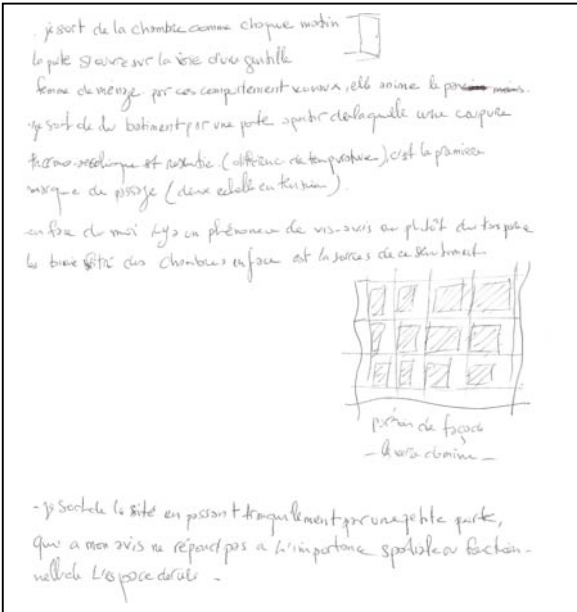 . je sort de la chambre comme chaque matin
la porte s'ouvre sur la voie d'une gentille
femme de ménage. par ces comportement, elle anime le
- je sort de du batiment par une porte apartir de laquelle une coupure
thermo- et ressentie (différence de température), c'est la première
marque de passage (deux echelle en tension).
en face du moi il y a un phénomène de vis-avis ou plutôt du
des chambres en face est la sources de ce sentiment.
portion de façade
- le verre domine -
- je sort de la sité en passant tranquilement par une petite porte,
qui a mon avis ne répond pas a l'importance spatiale ou fonction-
nelle de L'espace